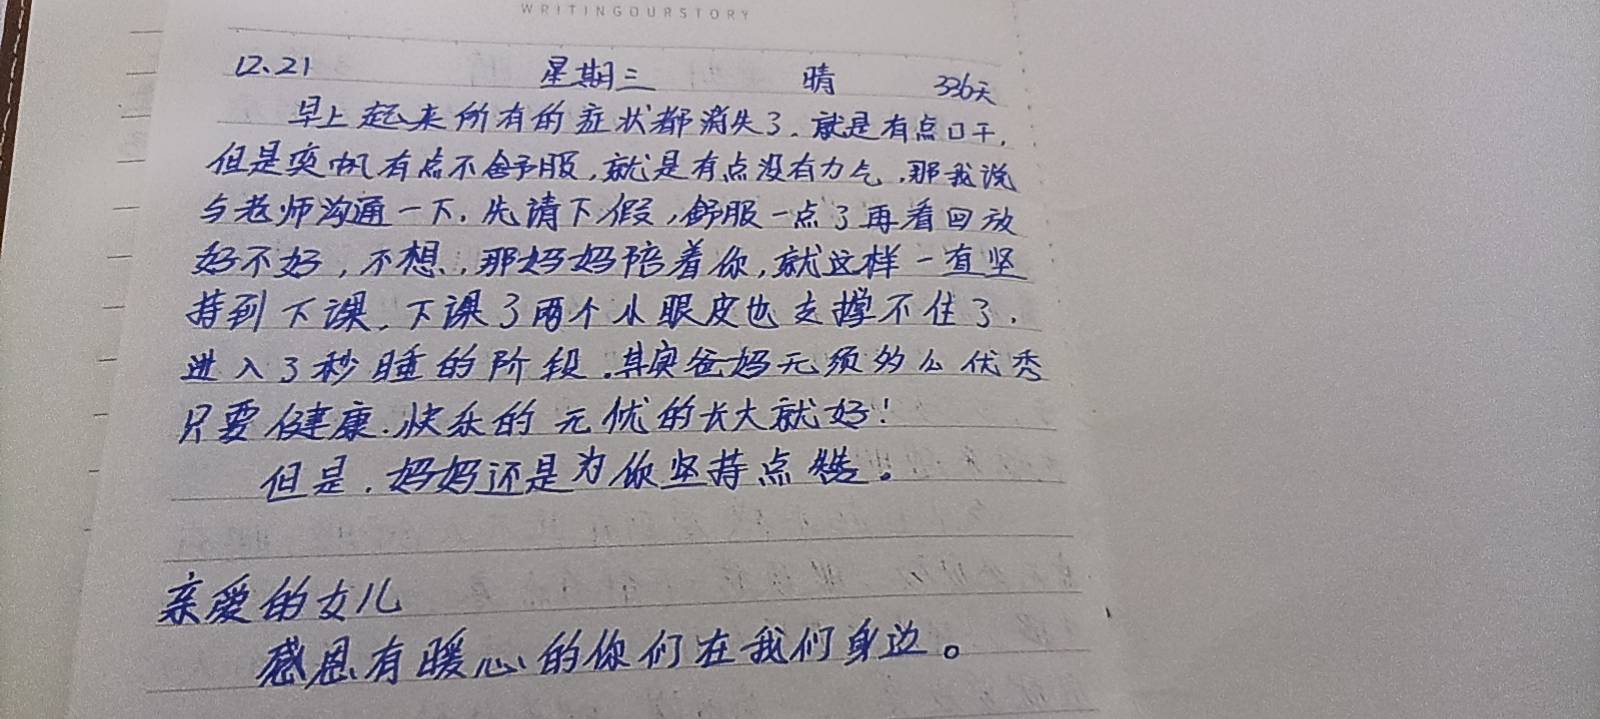 WRITINGOURSTORY
12.21 星期三 晴 336天
早上起来所有的症状都消失了.就是有点口干,
但是奕帆有点不舒服,就是有点没有力气,那我说
与老师沟通一下,先请下假,舒服一点了再看回放
好不好,不想,那妈妈陪着你,就这样一直坚
持到下课,下课了两个小眼皮也支撑不住了.
进入了秒睡的阶段.其实爸妈无须多么优秀
只要健康.快乐的无忧的长大就好!
但是.妈妈还是为你坚持点赞。
亲爱的女儿
感恩有暖心的你们在我们身边。